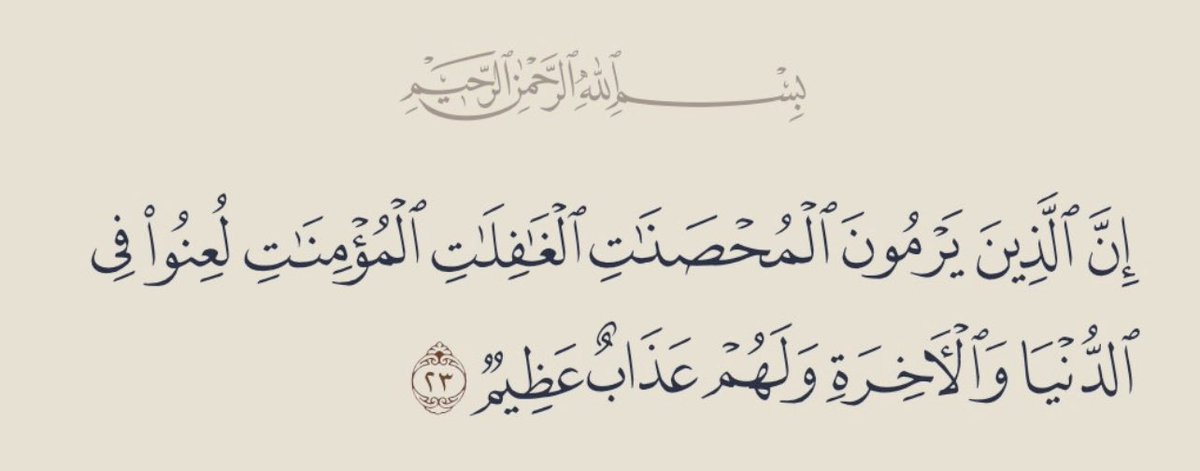 بِسْمِ ٱللَّهِ ٱلرَّحْمَٰنِ ٱلرَّحِيمِ
إِنَّ ٱلَّذِينَ يَرْمُونَ ٱلْمُحْصَنَٰتِ ٱلْغَٰفِلَٰتِ ٱلْمُؤْمِنَٰتِ لُعِنُوا۟ فِى
ٱلدُّنْيَا وَٱلْـَٔاخِرَةِ وَلَهُمْ عَذَابٌ عَظِيمٌ ٢٣